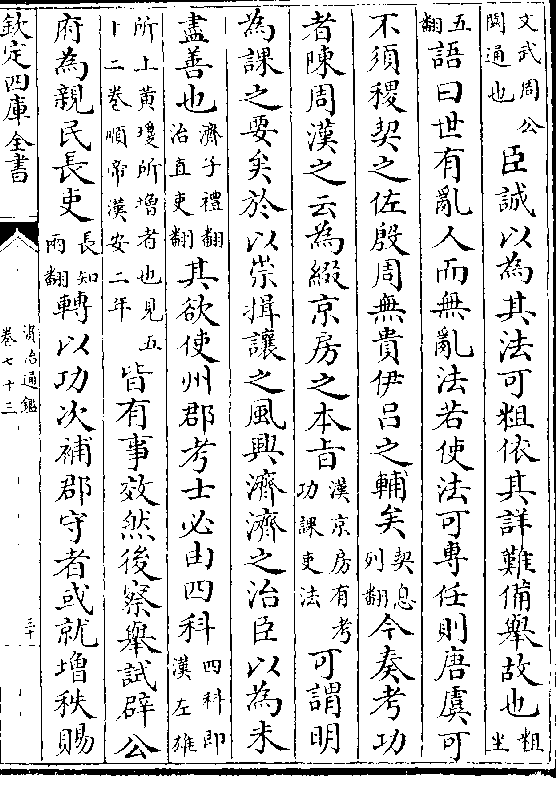 文武周公
闕通也臣誠以為其法可粗依其詳難備舉故也粗坐
五翻語曰世有亂人而無亂法若使法可專任則唐虞可
不須稷契之佐殷周無貴伊呂之輔矣契息列翻今奏考功
者陳周漢之云為綴京房之本旨漢京房有考功課吏法可謂明
為課之要矣於以崇揖讓之風興濟濟之治臣以為未
盡善也濟子禮翻治直吏翻其欲使州郡考士必由四科四科即漢左雄
所上黃瓊所增者也見五十二卷順帝漢安二年皆有事效然後察舉試辟公
府為親民長吏長知兩翻轉以功次補郡守者或就增秩賜
欽定四庫全書
資治通鑑
卷七十三
三十